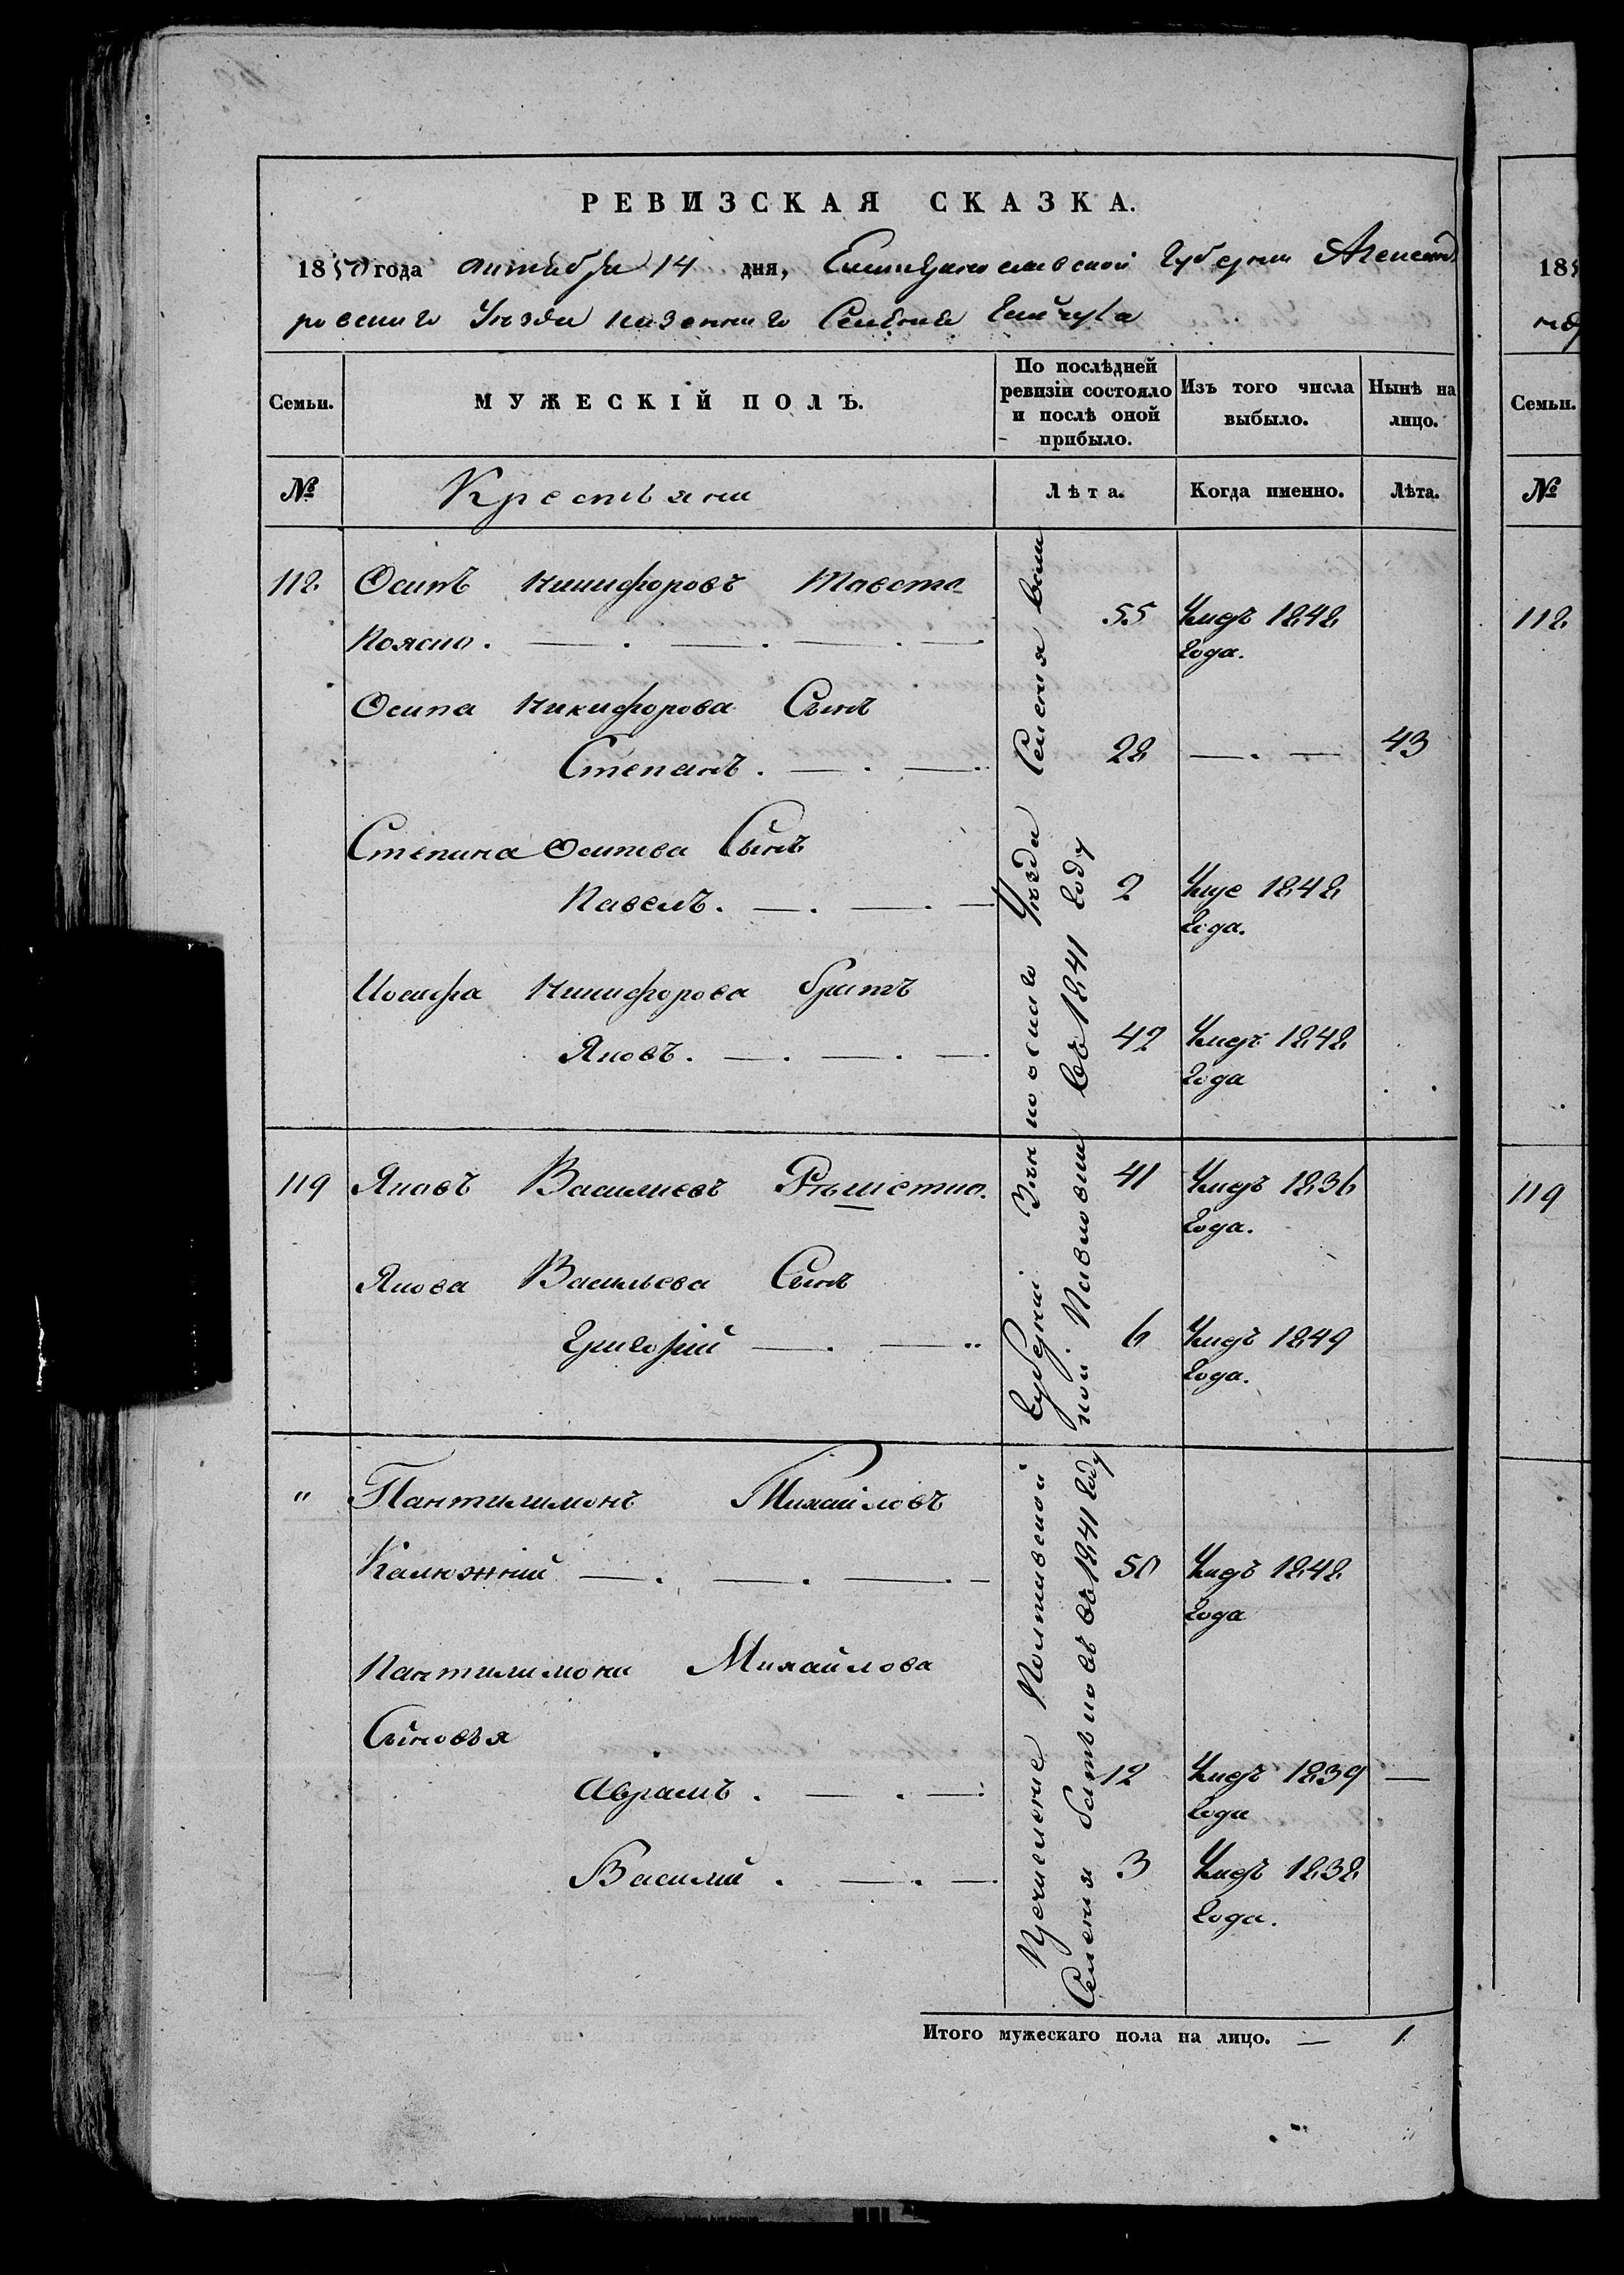 РЕВИЗСКАЯ СКАЗКА.
1850 года октября 14 дня, Екатеринославской Губернии Александ
ровскаго Уезда казеннаго Селения
Семьи.
МУЖЕСКІЙ ПОЛЪ.
По послѣдней
ревизіи состояло
и послѣ оной
прибыло.
Изъ того числа
выбыло.
Нынѣ на
лицо.
№
Крестьяни
Лѣта.
Когда именно.
Лѣта.
118 Осипъ Никифоровъ Товсто-
поясно. 55 Умеръ 1848
года.
Осипа Никифорова Сынъ
Степанъ. 28 43
Степана Осипова Сынъ
Павелъ. 2 Умре 1848
года.
Иосифа Никифорова братъ
Яковъ. 42 Умеръ 1848
года
119 Яковъ Васильевъ Решетно. 41 Умеръ 1836
года.
Якова Васильева Сынъ
Григорій 6 Умеръ 1849
года.
" Пантилимонъ Михайловъ
Калюжній 50 Умеръ 1848
года
Пантилимона Михайлова
Сыновья
Аврамъ. 12 Умеръ 1839
года
Василий. 3 Умеръ 1838
года.
Причисление Полтавской Губерніи Зеньковскаго Уезда Селения
Селения въ 1841 году
въ 1841 году
Итого мужескаго пола на лицо. — 1
185
Семьи.
№
118
119